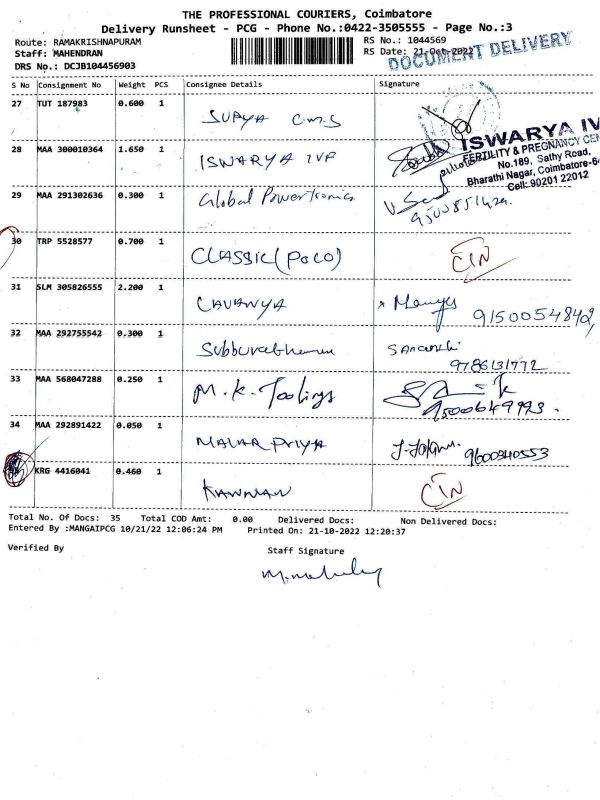 THE PROFESSIONAL COURIERS, Coimbatore
Delivery Runsheet - PCG - Phone No.:0422-3505555 - Page No.:3
Route: RAMAKRISHNAPURAM RS No.: 1044569
Staff: MAHENDRAN RS Date: 21-Oct-2022
DOCUMENT DELIVERY
DRS No.: DCJB104456903
S No Consignment No Weight PCS Consignee Details Signature
27 TUT 187983 0.600 1 SURYA CMS
28 MAA 300010364 1.650 1 ISWARYA IVF
ISWARYA IV
FERTILITY & PREGNANCY CEN
No.189, Sathy Road,
Bharathi Nagar, Coimbatore-6
Cell: 90201 22012
29 MAA 291302636 0.300 1 Global Powertronics
30 TRP 5528577 0.700 1 CLASSIC (POCO) CIN
31 SLM 305826555 2.200 1 LAVANYA 9150054840
32 MAA 292755542 0.300 1 Subburathinam
9786131772
33 MAA 568047288 0.250 1 M.K. Toolings
9500649993.
34 MAA 292891422 0.050 1 MALAR PRIYA 9600340553
KRG 4416041 0.460 1 KANNAN CIN
Total No. Of Docs: 35 Total COD Amt: 0.00 Delivered Docs: Non Delivered Docs:
Entered By :MANGAIPCG 10/21/22 12:06:24 PM Printed On: 21-10-2022 12:20:37
Verified By Staff Signature